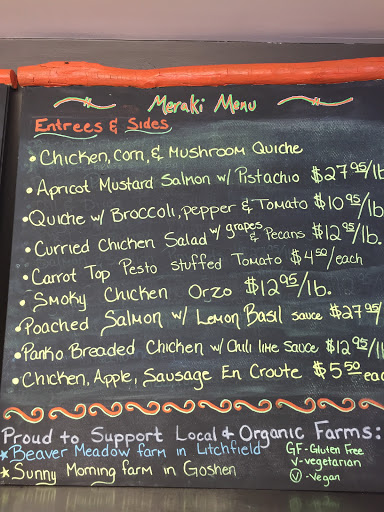 Meraki Menu
Entrees & Sides
• Chicken, Corn, & Mushroom Quiche
• Apricot Mustard Salmon w/ Pistachio $27 95/lb
• Quiche w/ Broccoli, pepper & Tomato $10 95/lb
• Curried Chicken Salad w/ grapes & Pecans $12 95/lb.
• Carrot Top Pesto stuffed Tomato $4 50/each
• Smoky Chicken Orzo $12 95/lb.
• Poached Salmon w/ Lemon Basil sauce $27 95/
• Panko Breaded Chicken w/ Chili lime Sauce $12 95/l
• Chicken, Apple, Sausage En Croute $5 50 eac
Proud to Support Local & Organic Farms:
★ Beaver Meadow farm in Litchfield
★ Sunny Morning farm in Goshen
GF - Gluten Free
V - vegetarian
Ⓥ - Vegan